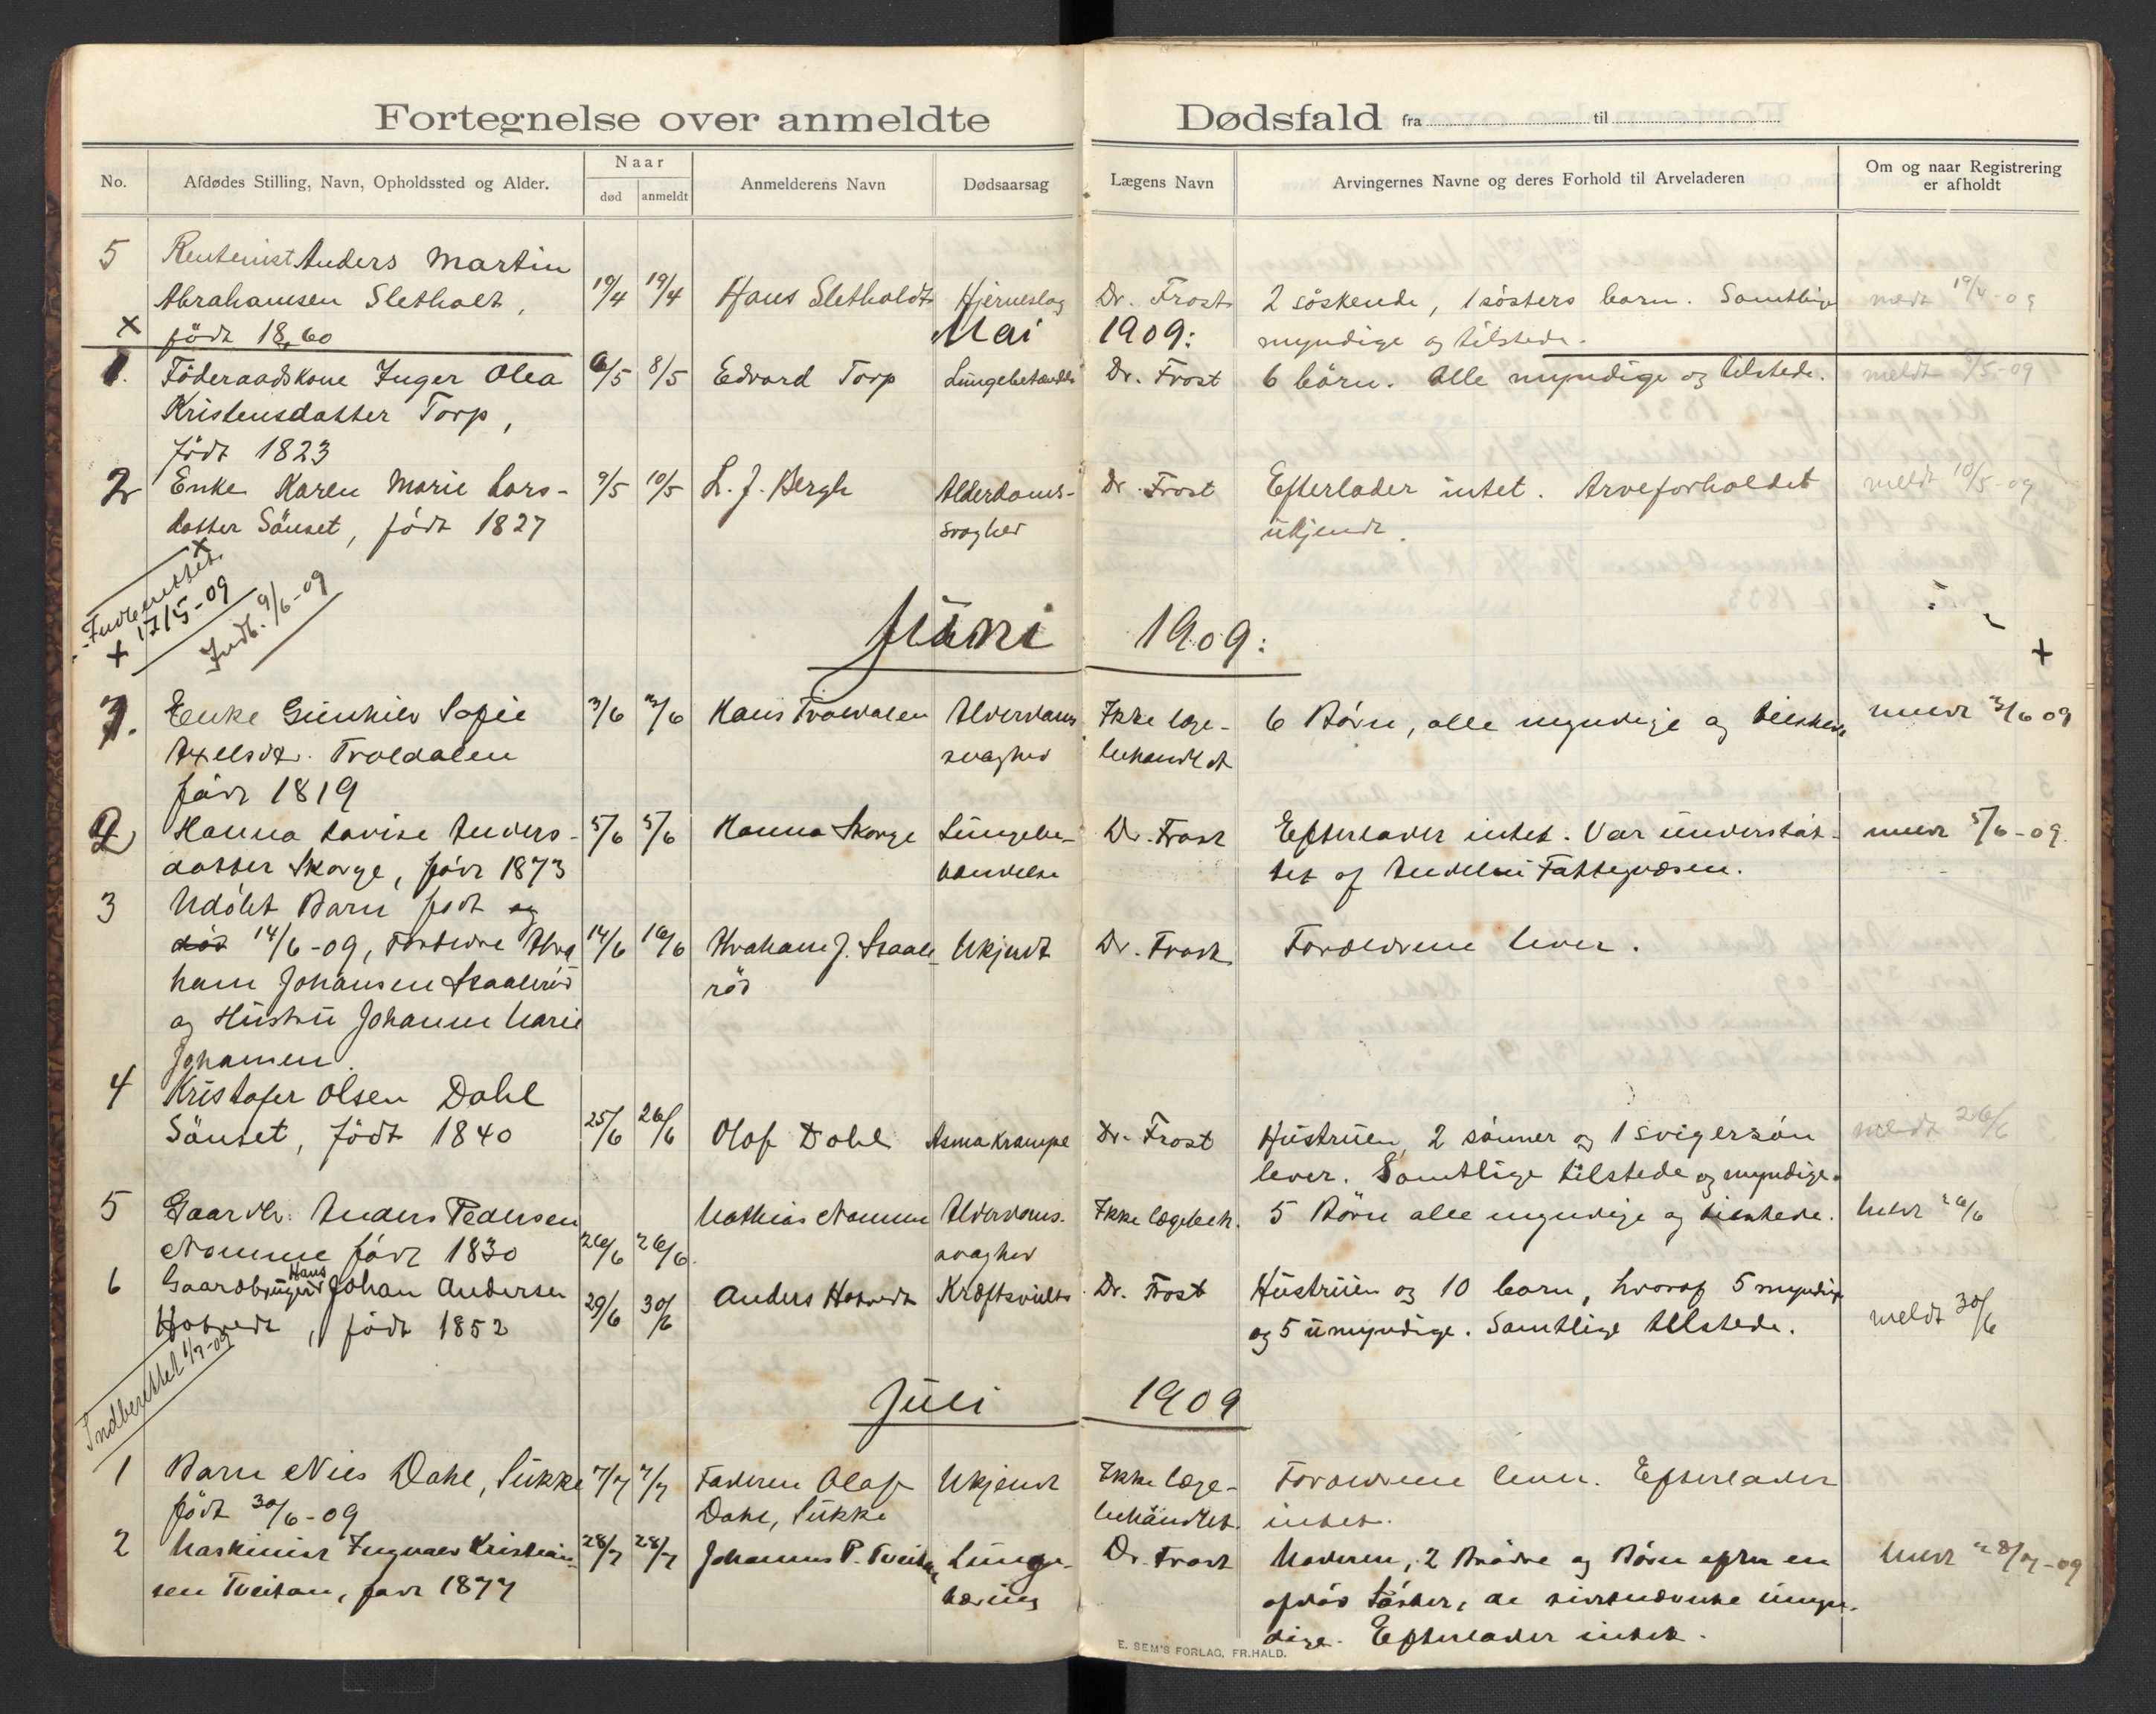 Fortegnelse over anmeldte Dødsfald fra til
No.
Afdødes Stilling, Navn, Opholdssted og Alder.
Naar
død
anmeldt
Anmelderens Navn
Dødsaarsag
Lægens Navn
Arvingernes Navne og deres Forhold til Arveladeren
Om og naar Registrering
er afholdt
5 Rentenist Anders Martin
Abrahamsen Sletholt, 19/4 19/4 Hans Sletholdt Hjerneslag Dr. Frost 2 söskende, 1 sösters barn. Samtlige meldt 19/4-09
x född 1860 myndige og tilstede.
Mai 1909:
1. Föderaadskone Inger Olea 6/5 8/5 Edvard Torp Lungebetændelse Dr. Frost 6 börn. Alle myndige og tilstede. meldt 8/5-09
Kristensdatter Torp,
födt 1823
2 Enke Karen Marie Lars- 9/5 10/5 L. J. Bergh Alderdoms- Dr. Frost Efterlader intet. Arveforholdet meldt 10/5-09
datter Sönset, födt 1827 svaghed ukjendt.
x
Indberettet
+ 17/5-09
Indb. 9/6-09
Juni 1909:
+
1. Enke Gunhild Sofie 3/6 3/6 Hans Troldalen Alderdoms Ikke læge- 6 Børn, alle myndige og tilstede meldt 3/6 09
Axelsdt. Troldalen svaghed behandlet
född 1819
2 Hanna Lovise Anders- 5/6 5/6 Hanna Skorge Lungebe- Dr. Frost Efterlader intet. Var understøt- meldt 5/6-09.
datter Skorge, född 1873 tændelse tet af Andebu Fattigvæsen.
3 Udöbt Barn födt og
død 14/6-09, Forældre Abra 14/6 16/6 Abraham J. Staale- Ukjendt Dr. Frost Forældrene lever.
ham Johansen Staaleröd röd
og Hustru Johanne Marie
Johansen.
4 Kristofer Olsen Dahl
Sönset, födt 1840 25/6 26/6 Olaf Dahl Asmakrampe Dr. Frost Hustruen, 2 sönner og 1 svigersön meldt 26/6
lever. Samtlige tilstede og myndige.
5 Gaardbr. Anders Pedersen Mathias Nomme Alderdoms- Ikke lægebeh. 5 Børn alle myndige og tilstede. Meldt 26/6
Nomme född 1830 26/6 26/6. svaghed
6 Gaardbruger Hans Johan Andersen 29/6 30/6 Anders Hotvedt Kræftsvulst Dr. Frost Hustruen og 10 barn, hvoraf 5 myndige meldt 30/6
Hotvedt, födt 1852 og 5 umyndige. Samtlige tilstede.
Indberettet 1/7-09
Juli 1909
1 Barn Nils Dahl, Sukke 7/7 7/7 Faderen Olaf Ukjendt Ikke læge- Forældrene lever. Efterlader
födt 30/6-09 Dahl, Sukke behandlet. intet.
2 Maskinist Ingvald Kristian- 28/7 28/7 Johannes P. Tveitan Lunge- Dr. Frost Moderen, 2 Brødre og Børn efter en Meldt 28/7-09
sen Tveitan, född 1877 tæring afdød Søster, de sidstnævnte umyn-
dige. Efterlader intet.
E. SEM'S FORLAG, FR.HALD.